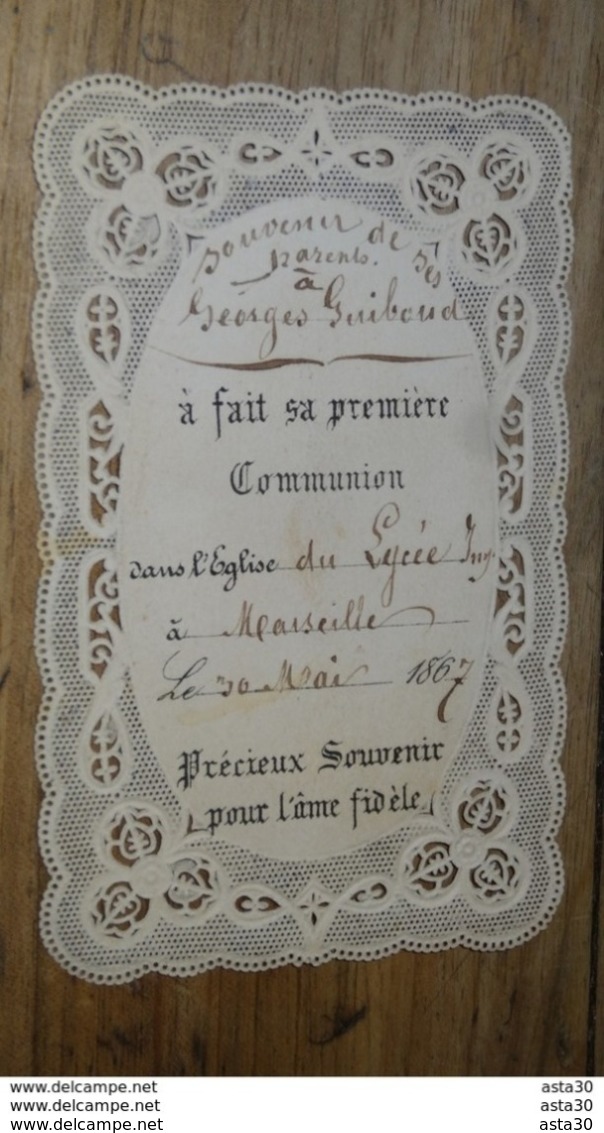 Souvenir de ses
parents.
à
Georges Guiboud
à fait sa première
Communion
dans l'Eglise du Lycée Imp.
à Marseille
Le 30 Mai 1867
Précieux Souvenir
pour l'âme fidèle
www.delcampe.net asta30
www.delcampe.net asta30
www.delcampe.net asta30